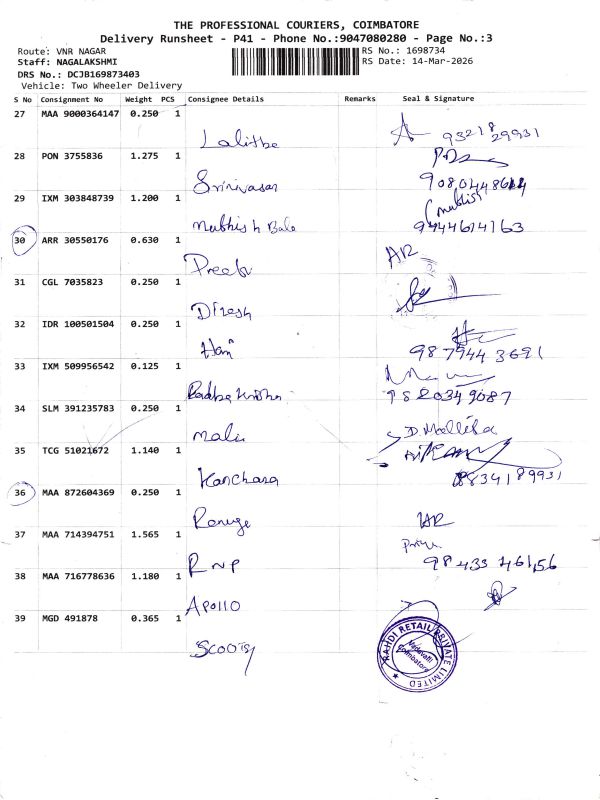 THE PROFESSIONAL COURIERS, COIMBATORE
Delivery Runsheet - P41 - Phone No.:9047080280 - Page No.:3
Route: VNR NAGAR RS No.: 1698734
Staff: NAGALAKSHMI RS Date: 14-Mar-2026
DRS No.: DCJB169873403
Vehicle: Two Wheeler Delivery
S No Consignment No Weight PCS Consignee Details Remarks Seal & Signature
27 MAA 9000364147 0.250 1
Lalitha 9321829931
28 PON 3755836 1.275 1
Srinivasan
29 IXM 303848739 1.200 1
Mubhish Bala 9444614163
30 ARR 30550176 0.630 1
Preeti AR
31 CGL 7035823 0.250 1
Dinesh
32 IDR 100501504 0.250 1
Hari 9879443691
33 IXM 509956542 0.125 1
Radha Krishna 9520349087
34 SLM 391235783 0.250 1
Mali D. Mallika
35 TCG 51021672 1.140 1
Kanchana 8834189931
36 MAA 872604369 0.250 1
37 MAA 714394751 1.565 1
RNP Priya 9843346156
38 MAA 716778636 1.180 1
Apollo
39 MGD 491878 0.365 1
Scootsy RAHDI RETAIL PRIVATE LIMITED
Coimbatore